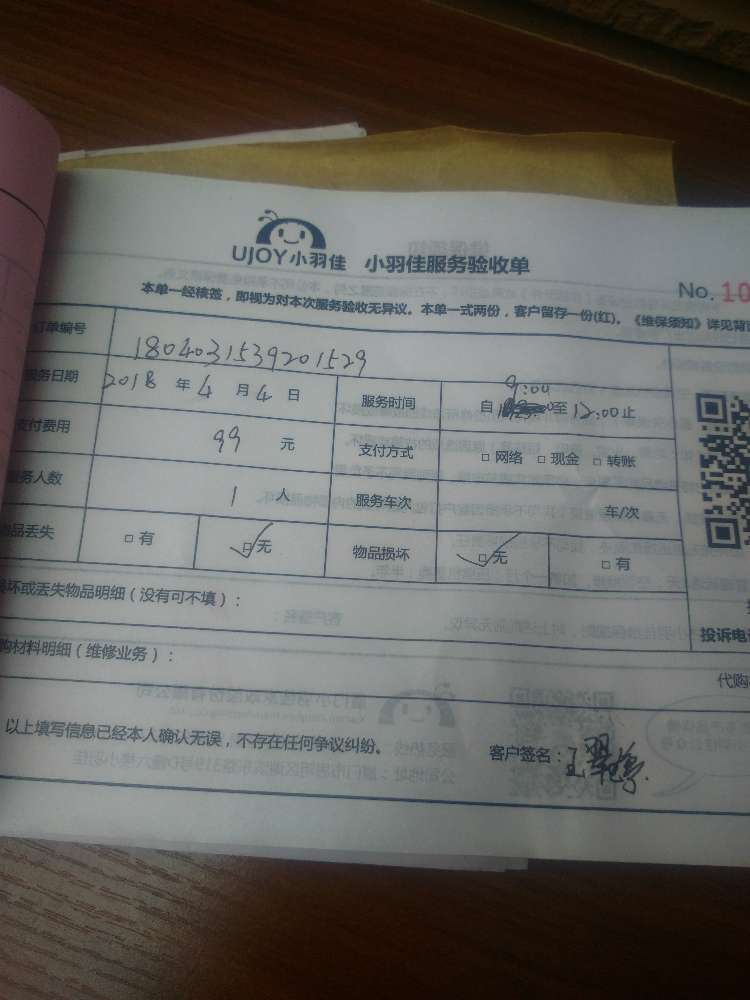 UJOY小羽佳 小羽佳服务验收单
No. 10
本单一经核签，即视为对本次服务验收无异议。本单一式两份，客户留存一份(红)。《维保须知》详见背
订单编号 1804031539201529
服务日期 2018 年 4 月 4 日 服务时间 自 9:00 至 12:00 止
支付费用 99 元 支付方式 □ 网络 □ 现金 □ 转账
服务人数 1 人 服务车次 车/次
物品丢失 □ 有 □ 无 物品损坏 □ 无 □ 有
损坏或丢失物品明细（没有可不填）：
投诉电
购材料明细（维修业务）：
代购
以上填写信息已经本人确认无误，不存在任何争议纠纷。 客户签名：王翠